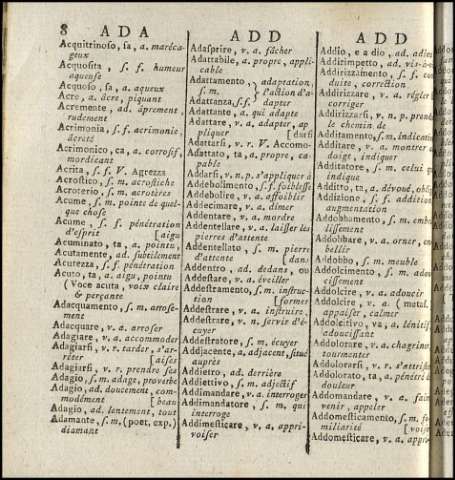 8 ADA
ADD
ADD
Acquitrinoso, sa, a. maréca-
geux
Acquosita, s. f. humeur
aqueuse
Acquoso, sa, a. aqueux
Acre, a. âcre, piquant
Acremente, ad. âprement,
rudement
Acrimonia, s. f. acrimonie,
âcreté
Acrimonico, ca, a. corrosif,
mordicant
Acrita, s. f. V. Agrezza
Acrostico, s. m. acrostiche
Acroterio, s. m. acrotères
Acume, s. m. pointe de quel-
que chose
Acume, s. f. pénétration
d'esprit [aigu
Acuminato, ta, a. pointu,
Acutamente, ad. subtilement
Acutezza, s. f. pénétration
Acuto, ta, a. aigu, pointu
(Voce acuta, voix claire
& perçante
Adacquamento, s. m. arrose-
ment
Adacquare, v. a. arroser
Adagiare, v. a. accommoder
Adagiarsi, v. r. tarder, s'ar-
rêter [aises
Adagiarsi, v. r. prendre ses
Adagio, s. m. adage, proverbe
Adagio, ad. doucement, com-
modément [beau
Adagio, ad. lentement, tout
Adamante, s. m. (poet, exp.)
diamant
Adasprire, v. a. fâcher
Adattabile, a. propre, appli-
cable
Adattamento, adaptation,
s. m. d'action d'a-
Adattanza, s. f. dapter
Adattante, a. qui adapte
Adattare, v. a. adapter, ap
pliquer [darsi
Adattarsi, v. r. V. Accomo-
Adattato, ta, a. propre, ca-
pable
Addarsi, v. n. p. s'appliquer à
Addebolimento, s. f. foiblesse
Addebolire, v. a. affoiblir
Addecimare, v. a. dîmer
Addentare, v. a. mordre
Addentellare, v. a. laisser les
pierres d'attente
Addentellato, s. m. pierre
d'attente [dans
Addentro, ad. dedans, ou
Addestare, v. a. éveiller
Addestramento, s. m. instruc-
tion [former
Addestrare, v. a. instruire,
Addestrare, v. n. servir d'é-
cuyer
Addestratore, s. m. écuyer
Adjacente, a. adjacent, situé
auprès
Addietro, ad. derrière
Addiettivo, s. m. adjectif
Addimandare, v. a. interroger
Addimandatore, s. m. qui
interroge
Addimesticare, v. a. appri-
voiser
Addio, e a dio, ad. adieu
Addirimpetto, ad. vis-à-vis
Addirizzamento, s. f. con
duite, correction
Addirizzare, v. a. régler
corriger
Addirizzarsi, v. n. p. prendre
le chemin de
Additamento, s. m. indication
Additare, v. a. montrer au
doigt, indiquer
Additatore, s. m. celui qui
indique
Additto, ta, a. dévoué, oblig
Addizione, s. f. addition
augmentation
Addobbamento, s. m. embel
lissement
Addobbare, v. a. orner, em-
bellir
Addobbo, s. m. meuble
Addolcimento, s. m. adou
cissement
Addolcire, v. a. adoucir
Addolcire, v. a. (metal.
appaiser, calmer
Addolcitivo, va, a. lénitif
adoucissant
Addolorare, v. a. chagriner
tourmenter
Addolorarsi, v. r. s'attrister
Addolorato, ta, a. pénétré de
douleur
Addomandare, v. a. faire
venir, appeler
Addomesticamento, s. m. fa-
miliarité [voiser
Addomesticare, v. a. appri